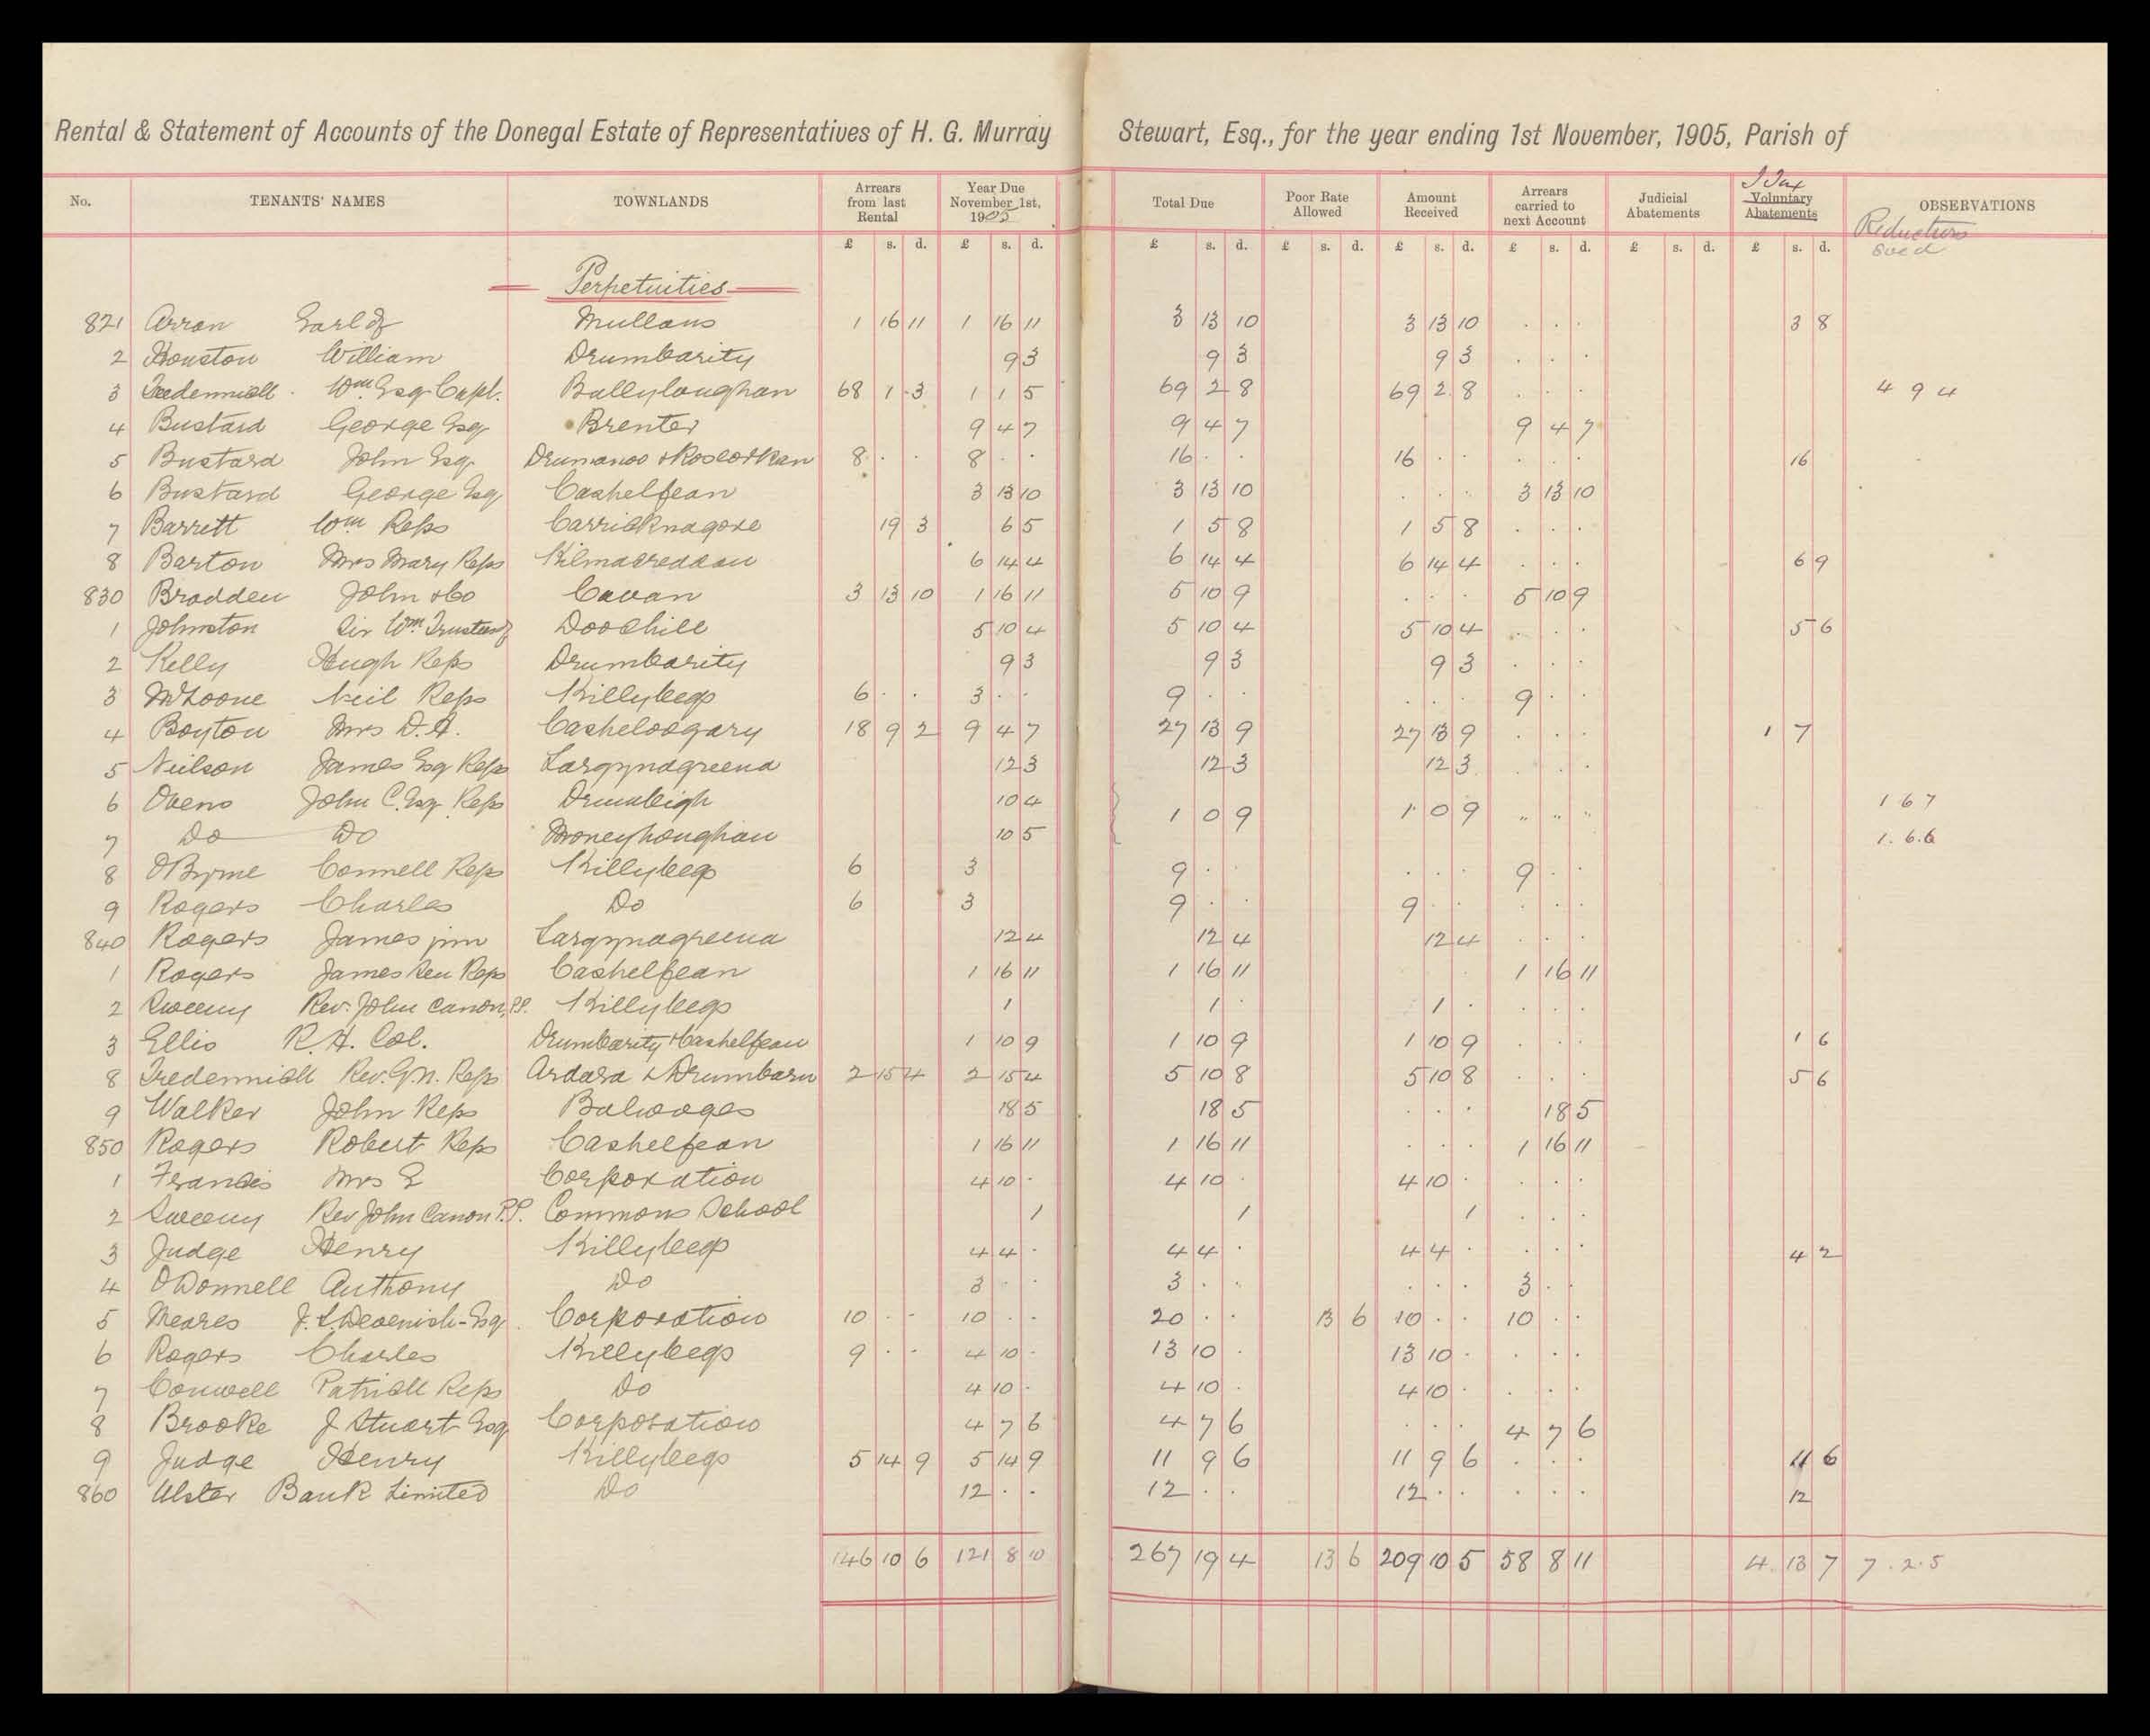 Rental & Statement of Accounts of the Donegal Estate of Representatives of H. G. Murray Stewart, Esq., for the year ending 1st November, 1905, Parish of
No. TENANTS' NAMES TOWNLANDS Arrears from last Rental Year Due November 1st, 1905 Total Due Poor Rate Allowed Amount Received Arrears carried to next Account Judicial Abatements I Tax Voluntary Abatements OBSERVATIONS Reductions
£ s. d. £ s. d. £ s. d. £ s. d. £ s. d. £ s. d. £ s. d. £ s. d.
Perpetuities
821 Arran Earl of Mullans 1 16 11 1 16 11 3 13 10 3 13 10 . . . 3 8
2 Houston William Drumbarity 9 3 9 3 9 3 . . .
3 Tredennick Wm Esq Capt. Ballyloughan 68 1 3 1 1 5 69 2 8 69 2 8 . . . 4 9 4
4 Bustard George Esq Brenter 9 4 7 9 4 7 9 4 7
5 Bustard John Esq Drumanoo & Roscorkan 8 . . 8 . . 16 . . 16 . . . . . 16
6 Bustard George Esq Cashelfean 3 13 10 3 13 10 . . . 3 13 10
7 Barrett Wm Reps Carricknagore 19 3 6 5 1 5 8 1 5 8 . . .
8 Barton Mrs Mary Reps Kilmacreddan 6 14 4 6 14 4 6 14 4 . . . 6 9
830 Brodden John & Co Cavan 3 13 10 1 16 11 5 10 9 . . . 5 10 9
1 Johnston Sir Wm Trustees of Doochill 5 10 4 5 10 4 5 10 4 . . . 5 6
2 Kelly Hugh Reps Drumbarity 9 3 9 3 9 3 . . .
3 McLoone Neil Reps Killybegs 6 . . 3 . . 9 . . . . . 9 . .
4 Boyton Mrs D. A. Casheloogary 18 9 2 9 4 7 27 13 9 27 13 9 . . . 1 7
5 Neilson James Esq Reps Largynagreena 12 3 12 3 12 3 . . .
6 Owens John C. Esq Reps Drumbeigh 10 4 1 0 9 1 0 9 " " " 1 6 7
7 Do Do Moneyhoughan 10 5 1. 6. 6
8 O'Byrne Connell Reps Killybegs 6 3 9 . . . . . 9 . .
9 Rogers Charles Do 6 3 9 . . 9 . . . . .
840 Rogers James jun Largynagreena 12 4 12 4 12 4 . . .
1 Rogers James Sen Reps Cashelfean 1 16 11 1 16 11 . . 1 16 11
2 Sweeny Rev. John Canon, P.P. Killybegs 1 1 . 1 . . . .
3 Ellis R. H. Col. Drumbarity & Cashelfean 1 10 9 1 10 9 1 10 9 . . . 1 6
8 Tredennick Rev. G.N. Reps Ardara & Drumbarn 2 15 4 2 15 4 5 10 8 5 10 8 . . . 5 6
9 Walker John Reps Balwoges 18 5 18 5 . . . 18 5
850 Rogers Robert Reps Cashelfean 1 16 11 1 16 11 . . . 1 16 11
1 Francis Mrs E Corporation 4 10 . 4 10 . 4 10 . . . .
2 Sweeny Rev John Canon P.P. Commons School 1 1 1 . . .
3 Judge Henry Killybegs 4 4 . 4 4 . 4 4 . . . . 4 2
4 O'Donnell Anthony Do 3 . . 3 . . . . . 3 . .
5 Meares J. L. Devenish-Esq. Corporation 10 . - 10 . . 20 . . 13 6 10 . . 10 . .
6 Rogers Charles Killybegs 9 . . 4 10 . 13 10 . 13 10 . . . .
7 Conwell Patrick Reps Do 4 10 . 4 10 . 4 10 . . . .
8 Brooke J Stuart Esq Corporation 4 7 6 4 7 6 . . . 4 7 6
9 Judge Henry Killybegs 5 14 9 5 14 9 11 9 6 11 9 6 . . . 11 6
860 Ulster Bank Limited Do 12 . . 12 . . 12 . . . . . 12
146 10 6 121 8 10 267 19 4 13 6 209 10 5 58 8 11 4. 13 7 7. 2. 5